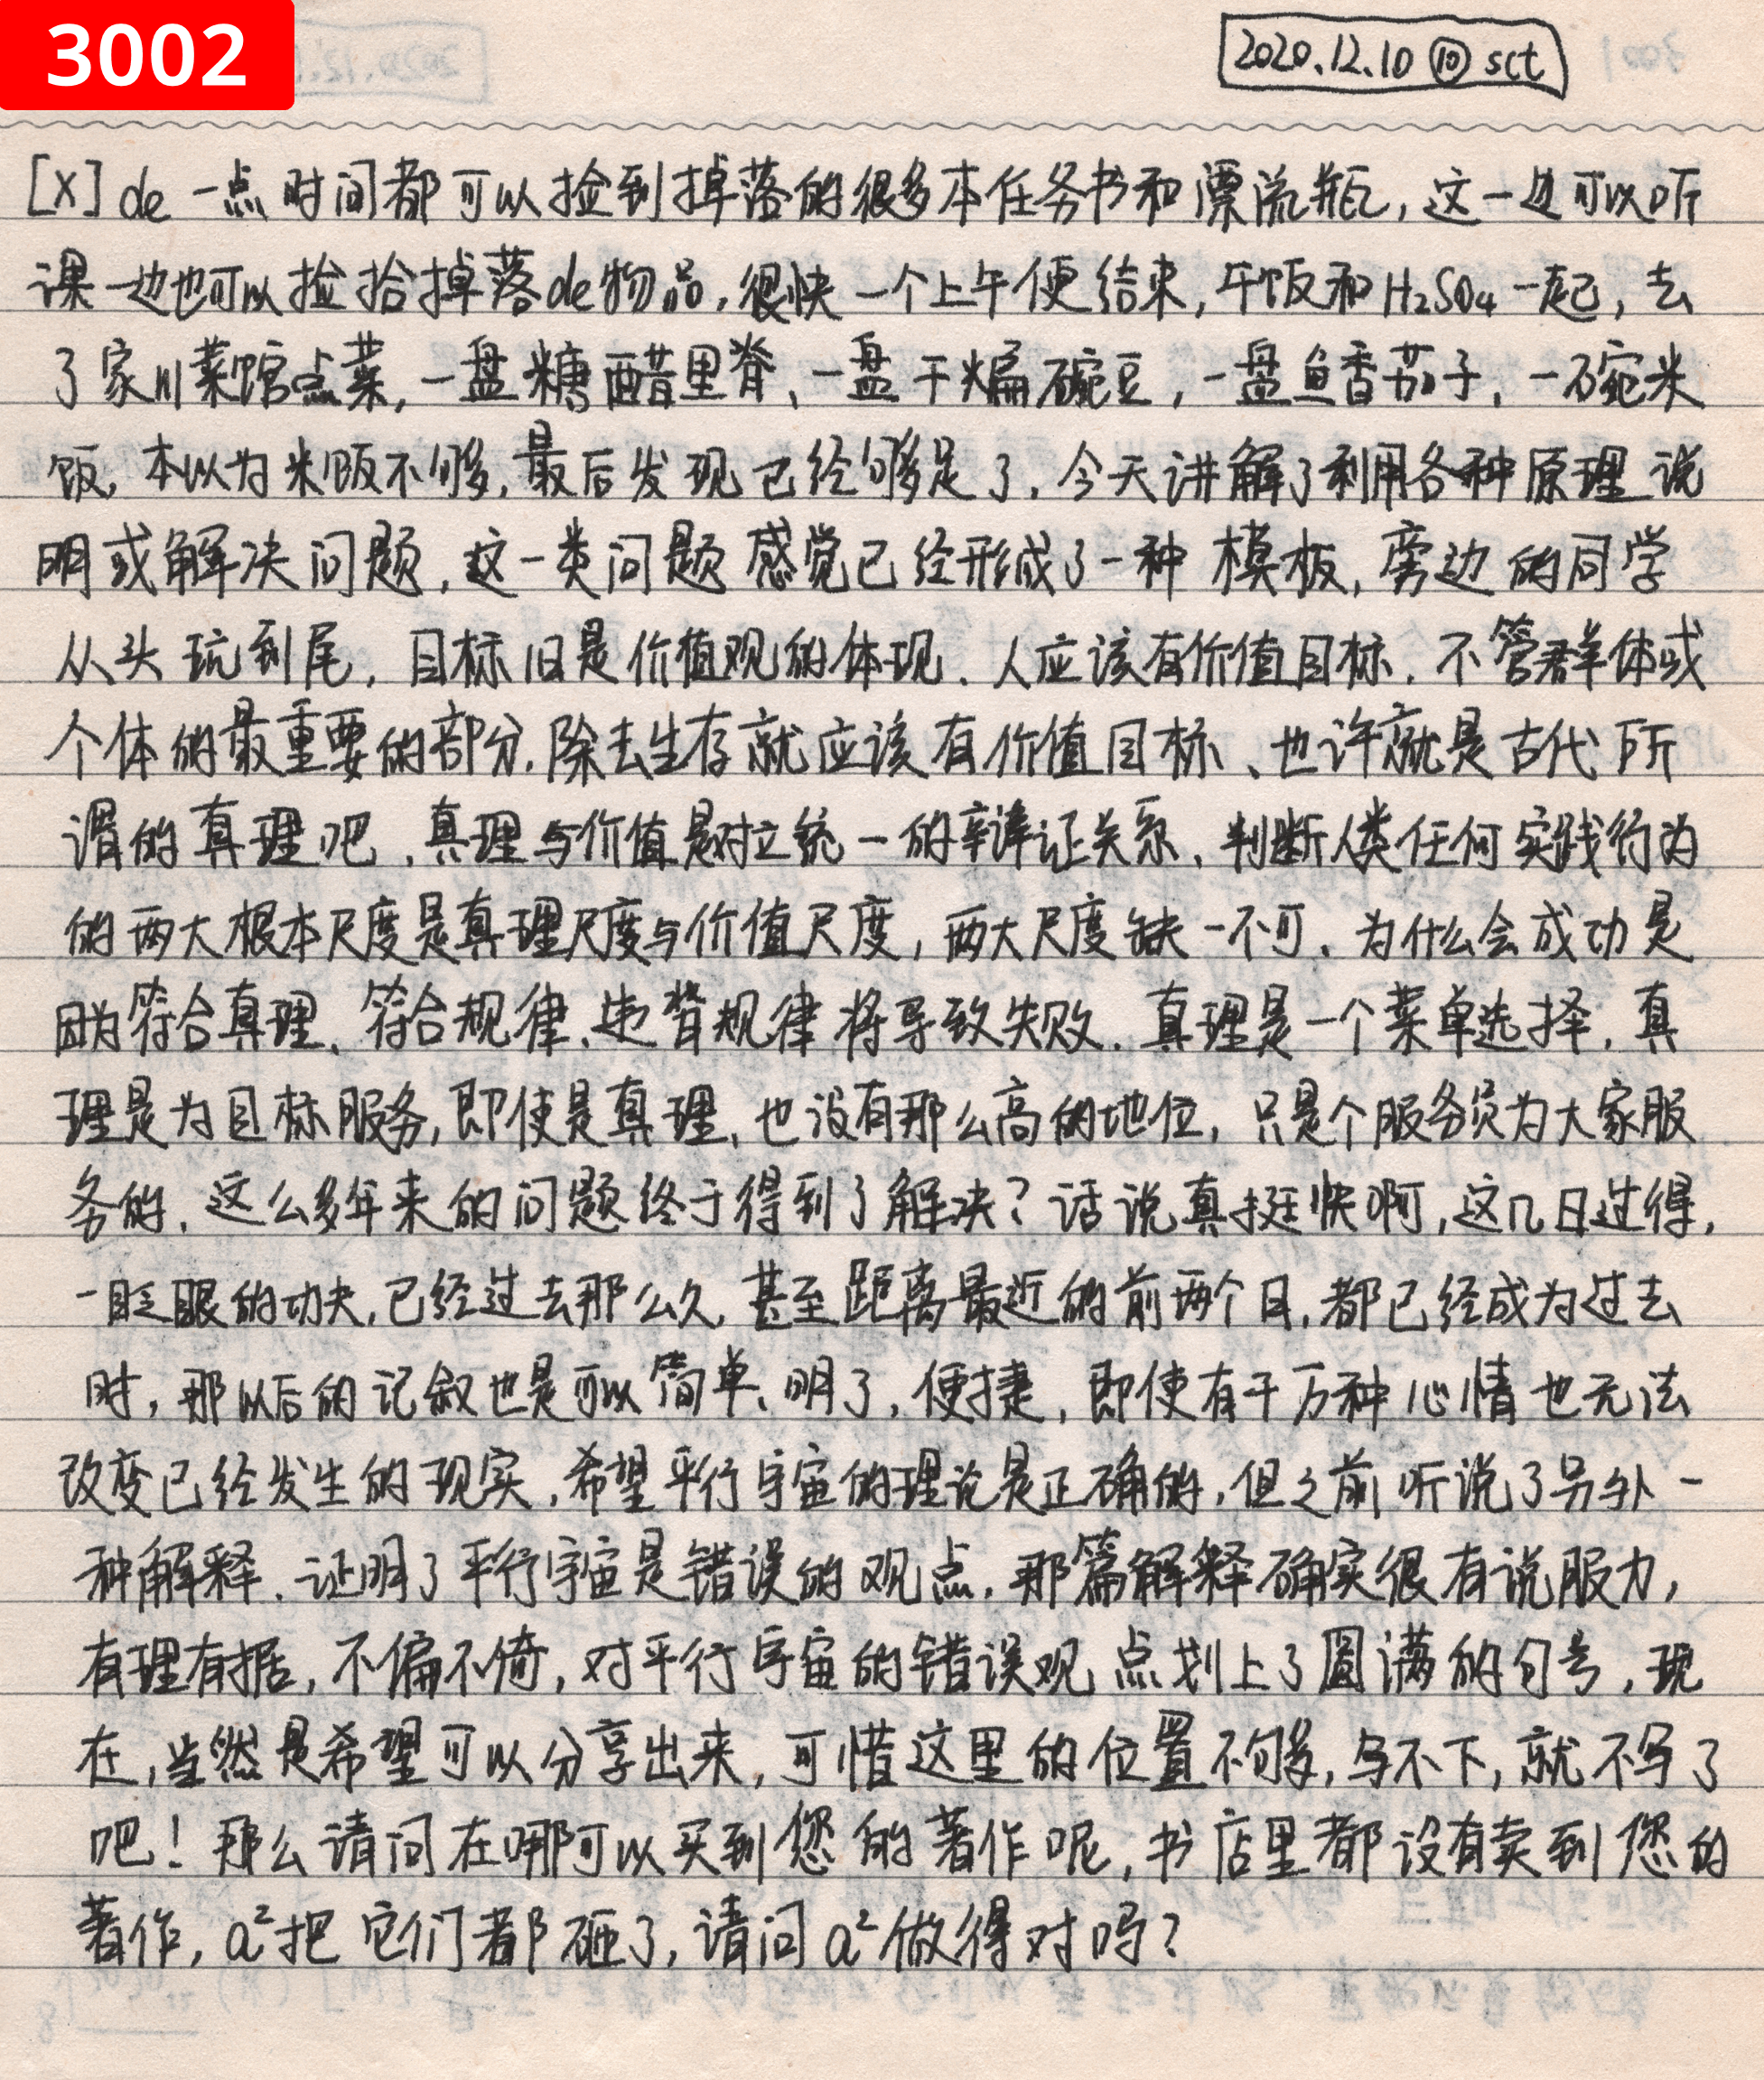 3002
2020.12.10 ⑩ sct
[X] de 一点时间都可以捡到掉落的很多本任务书和漂流瓶，这一边可以听
课一边也可以捡拾掉落de物品，很快一个上午便结束，午饭和H₂SO₄一起，去
了家川菜馆点菜，一盘糖醋里脊、一盘干煸碗豆，一盘鱼香茄子，一碗米
饭，本以为米饭不够，最后发现已经够足了。今天讲解了利用各种原理说
明或解决问题，这一类问题感觉已经形成了一种模板，旁边的同学
从头玩到尾，目标旧是价值观的体现、人应该有价值目标，不管群体或
个体的最重要的部分，除去生存就应该有价值目标、也许就是古代所
谓的真理吧，真理与价值是对立统一的辩证关系、判断人类任何实践行为
的两大根本尺度是真理尺度与价值尺度，两大尺度缺一不可、为什么会成功是
因为符合真理、符合规律、违背规律将导致失败．真理是一个菜单选择，真
理是为目标服务，即使是真理、也没有那么高的地位，只是个服务员为大家服
务的、这么多年来的问题终于得到了解决？话说真挺快啊，这几日过得，
一眨眼的功夫，已经过去那么久，甚至距离最近的前两个日，都已经成为过去
时，那以后的记叙也是可以简单、明了，便捷，即使有千万种心情也无法
改变已经发生的现实，希望平行宇宙的理论是正确的，但之前听说了另外一
种解释、证明了平行宇宙是错误的观点，那篇解释确实很有说服力，
有理有据，不偏不倚，对平行宇宙的错误观点划上了圆满的句号，现
在，当然是希望可以分享出来，可惜这里的位置不够，写不下，就不写了
吧！那么请问在哪可以买到您的著作呢，书店里都没有卖到您的
著作，a²把它们都砸了，请问a²做得对吗？